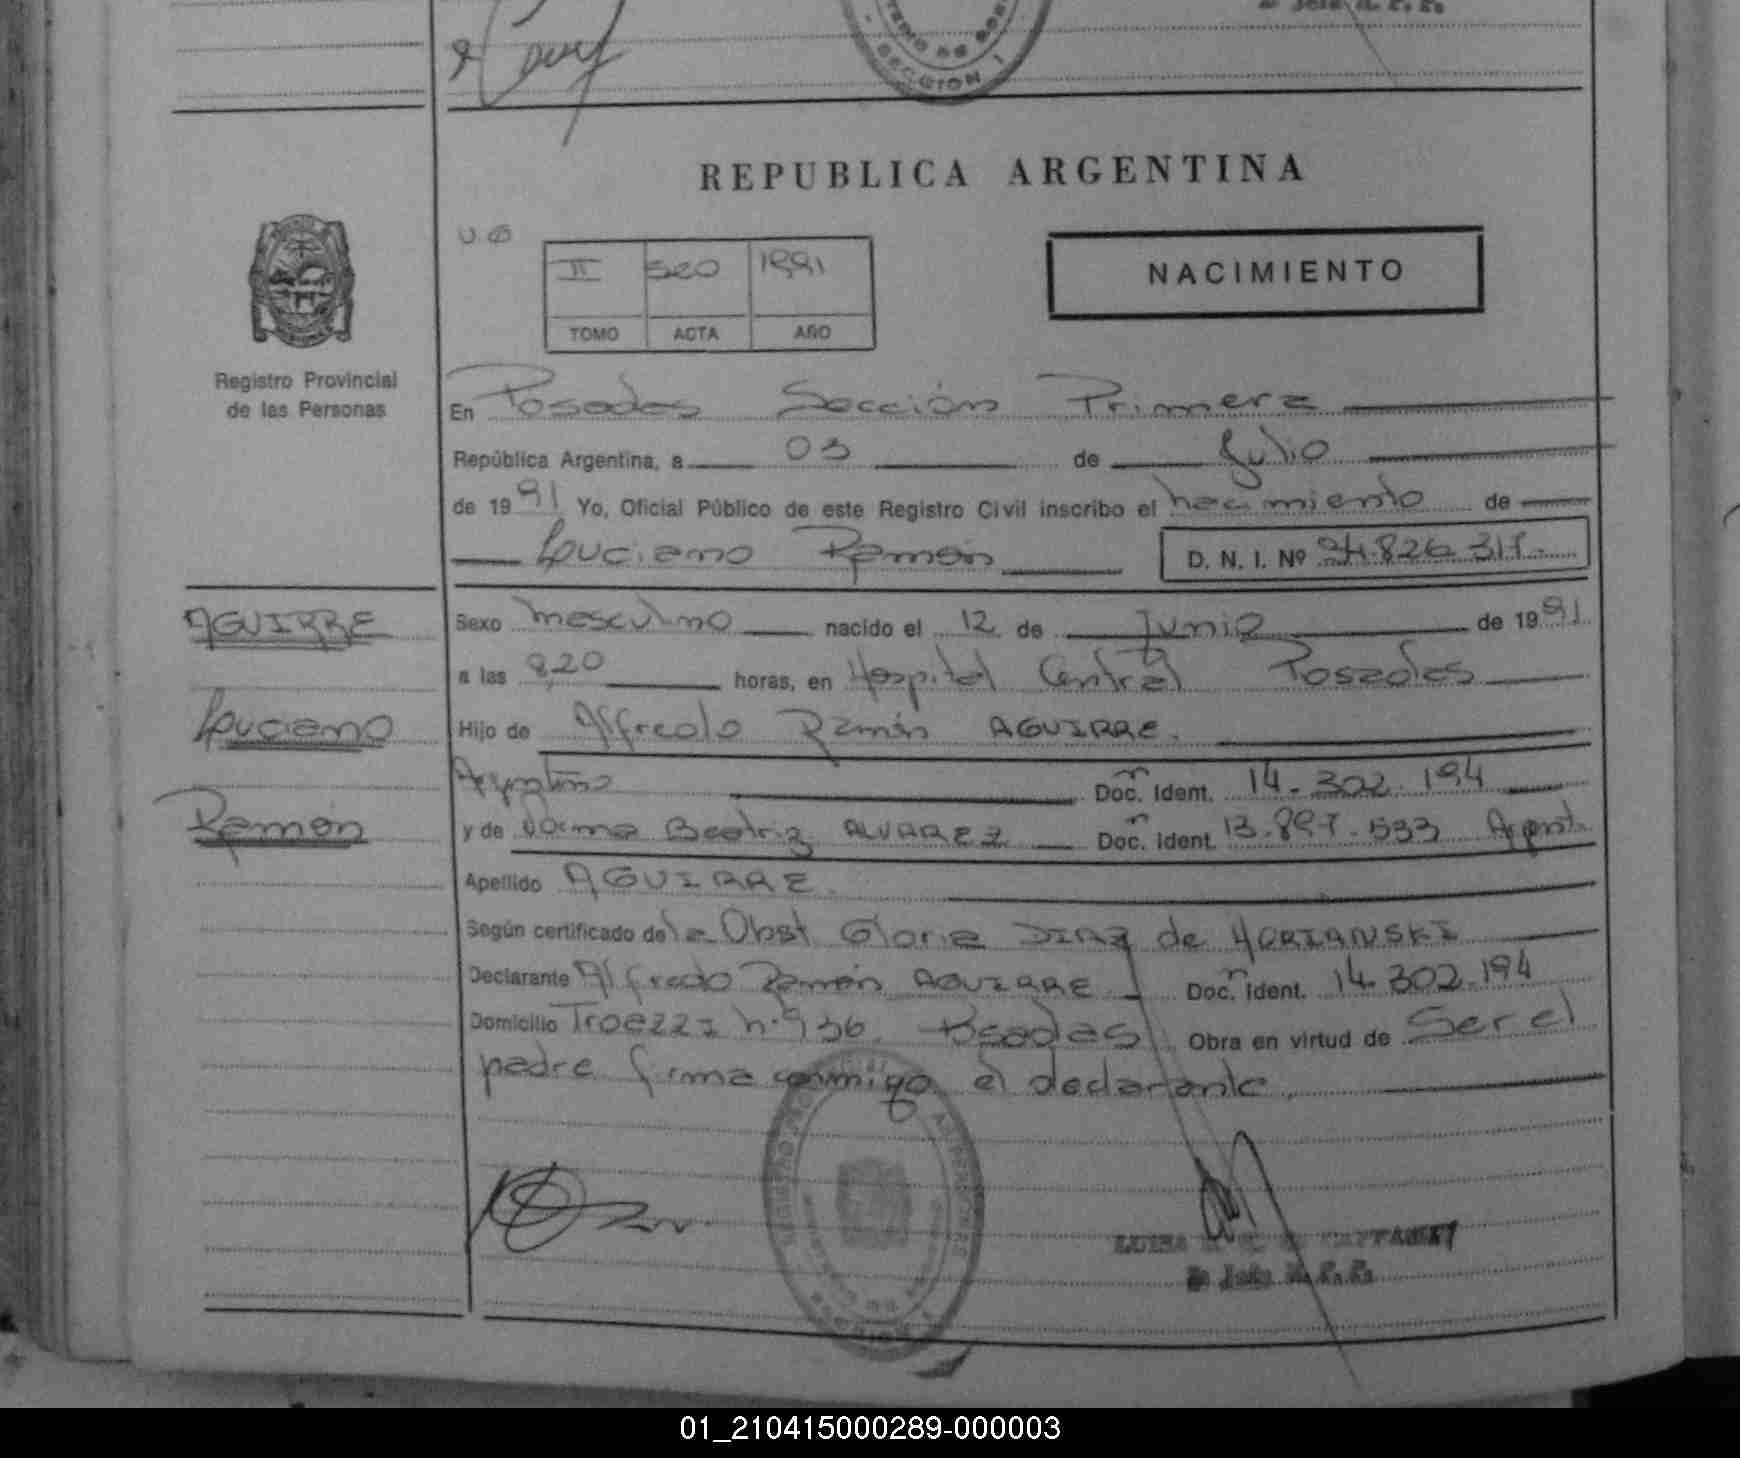 2º Jefe R. P. P.
SECCION 1
REPUBLICA ARGENTINA
NACIMIENTO
II 520 1991
TOMO ACTA AÑO
Registro Provincial
de las Personas
En Posadas Sección Primera
República Argentina, a 03 de Julio
de 1991 Yo, Oficial Público de este Registro Civil inscribo el nacimiento de
Luciano Ramón D. N. I. Nº
AGUIRRE
Luciano
Ramón
Sexo masculino nacido el 12 de Junio de 1991
a las 8,20 horas, en Hospital Central Posadas
Hijo de Alfredo Ramón AGUIRRE.
Argentino Doc. Ident. 14.302.194
y de Norma Beatriz ALVAREZ Doc. Ident. 13.897.533 Argent.
Apellido AGUIRRE.
Según certificado de la Obst Gloria DIAZ de
Declarante Alfredo Ramón AGUIRRE Doc. Ident. 14.302.194
Domicilio Posadas Obra en virtud de Ser el
padre firma conmigo el declarante.
LUISA
2º Jefe R. P. P.
01_210415000289-000003